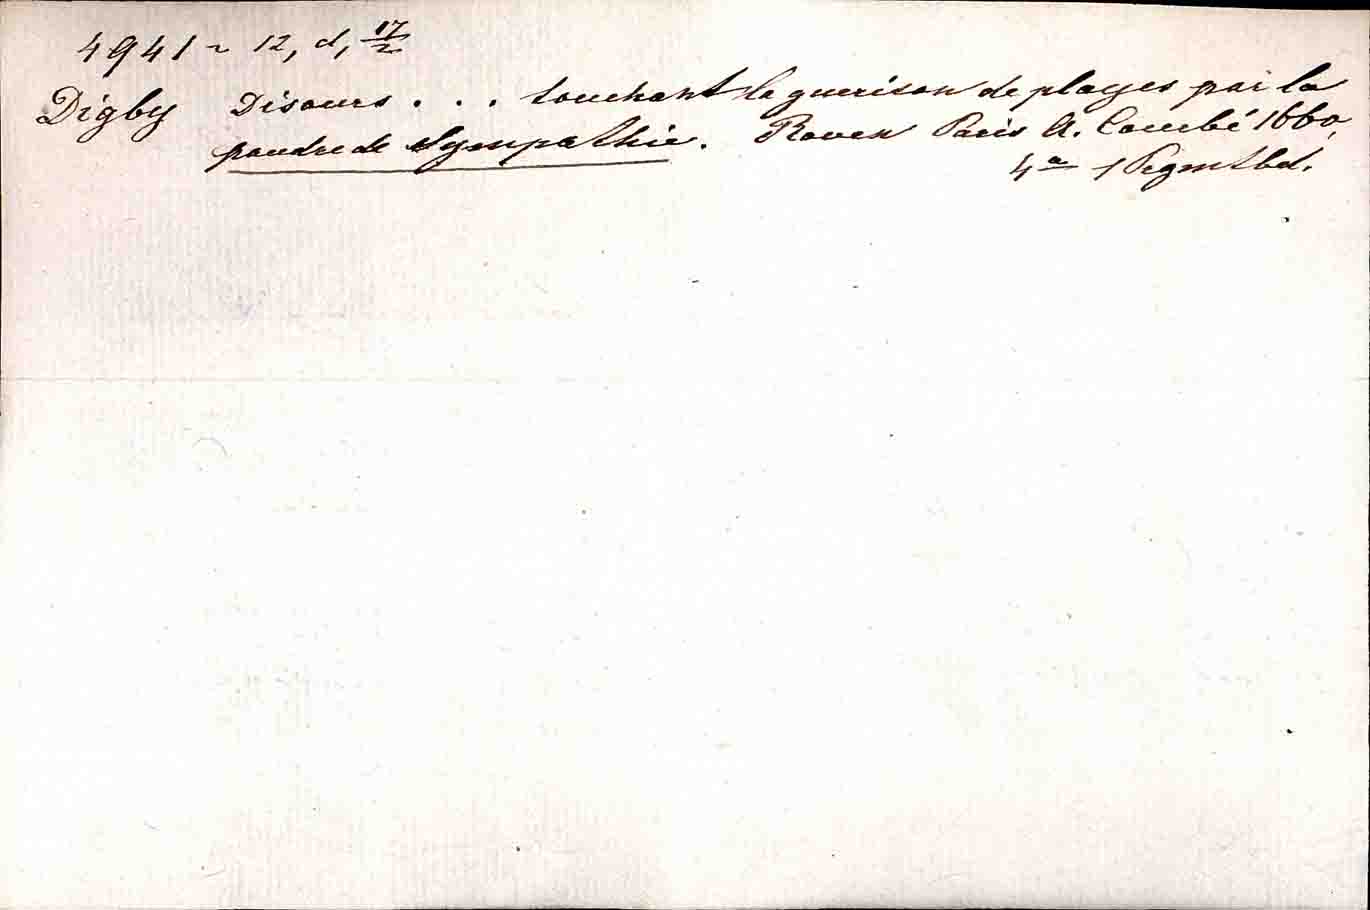 4941 ~ 12, d, 17/2
Digby Disours . . . touchant la guerison de playes par la
poudre de Sympathie. Rouen Paris A. Courbé 1660,
4º 1 Pegmtbd.